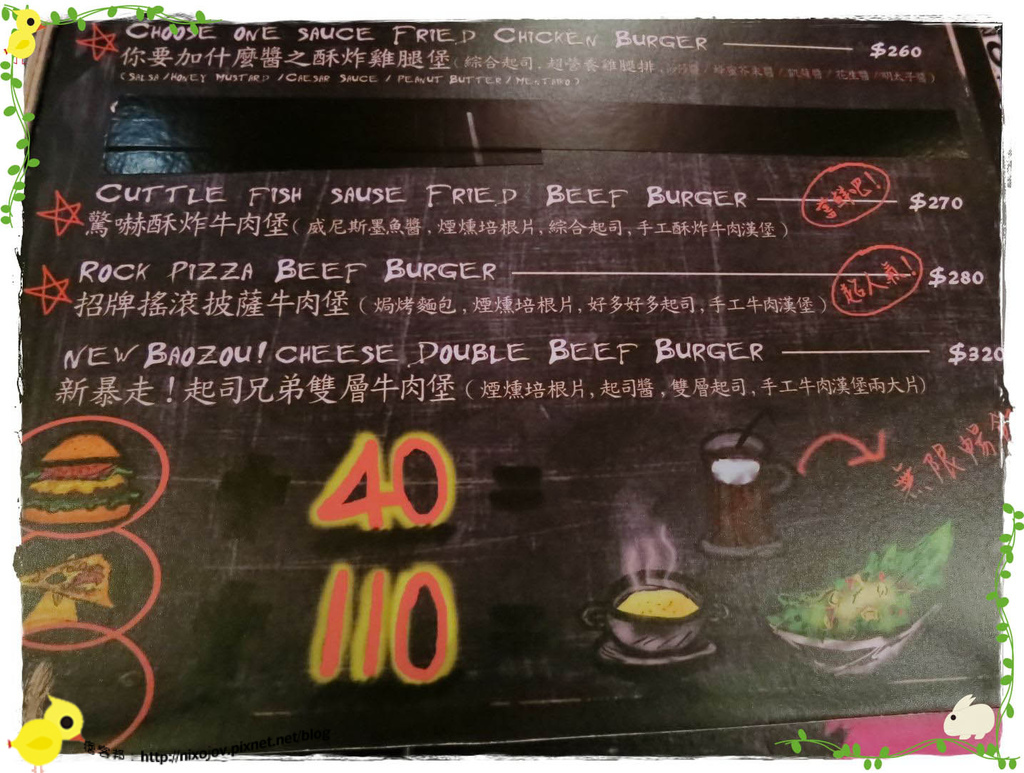 CHOOSE ONE SAUCE FRIED CHICKEN BURGER $260
你要加什麼醬之酥炸雞腿堡(綜合起司,超營養雞腿排,莎莎醬/蜂蜜芥末醬/凱薩醬/花生醬/明太子醬)
(SALSA/HONEY MUSTARD/CAESAR SAUCE/PEANUT BUTTER/MENTAIKO)
CUTTLE FISH SAUSE FRIED BEEF BURGER $270
驚嚇酥炸牛肉堡(威尼斯墨魚醬,煙燻培根片,綜合起司,手工酥炸牛肉漢堡)
ROCK PIZZA BEEF BURGER 超人氣! $280
招牌搖滾披薩牛肉堡(焗烤麵包,煙燻培根片,好多好多起司,手工牛肉漢堡)
NEW BAOZOU! CHEESE DOUBLE BEEF BURGER $320
新暴走!起司兄弟雙層牛肉堡(煙燻培根片,起司醬,雙層起司,手工牛肉漢堡兩大片)
+ 40 =
無限暢飲
+ 110
痞客邦 http://nixojoy.pixnet.net/blog